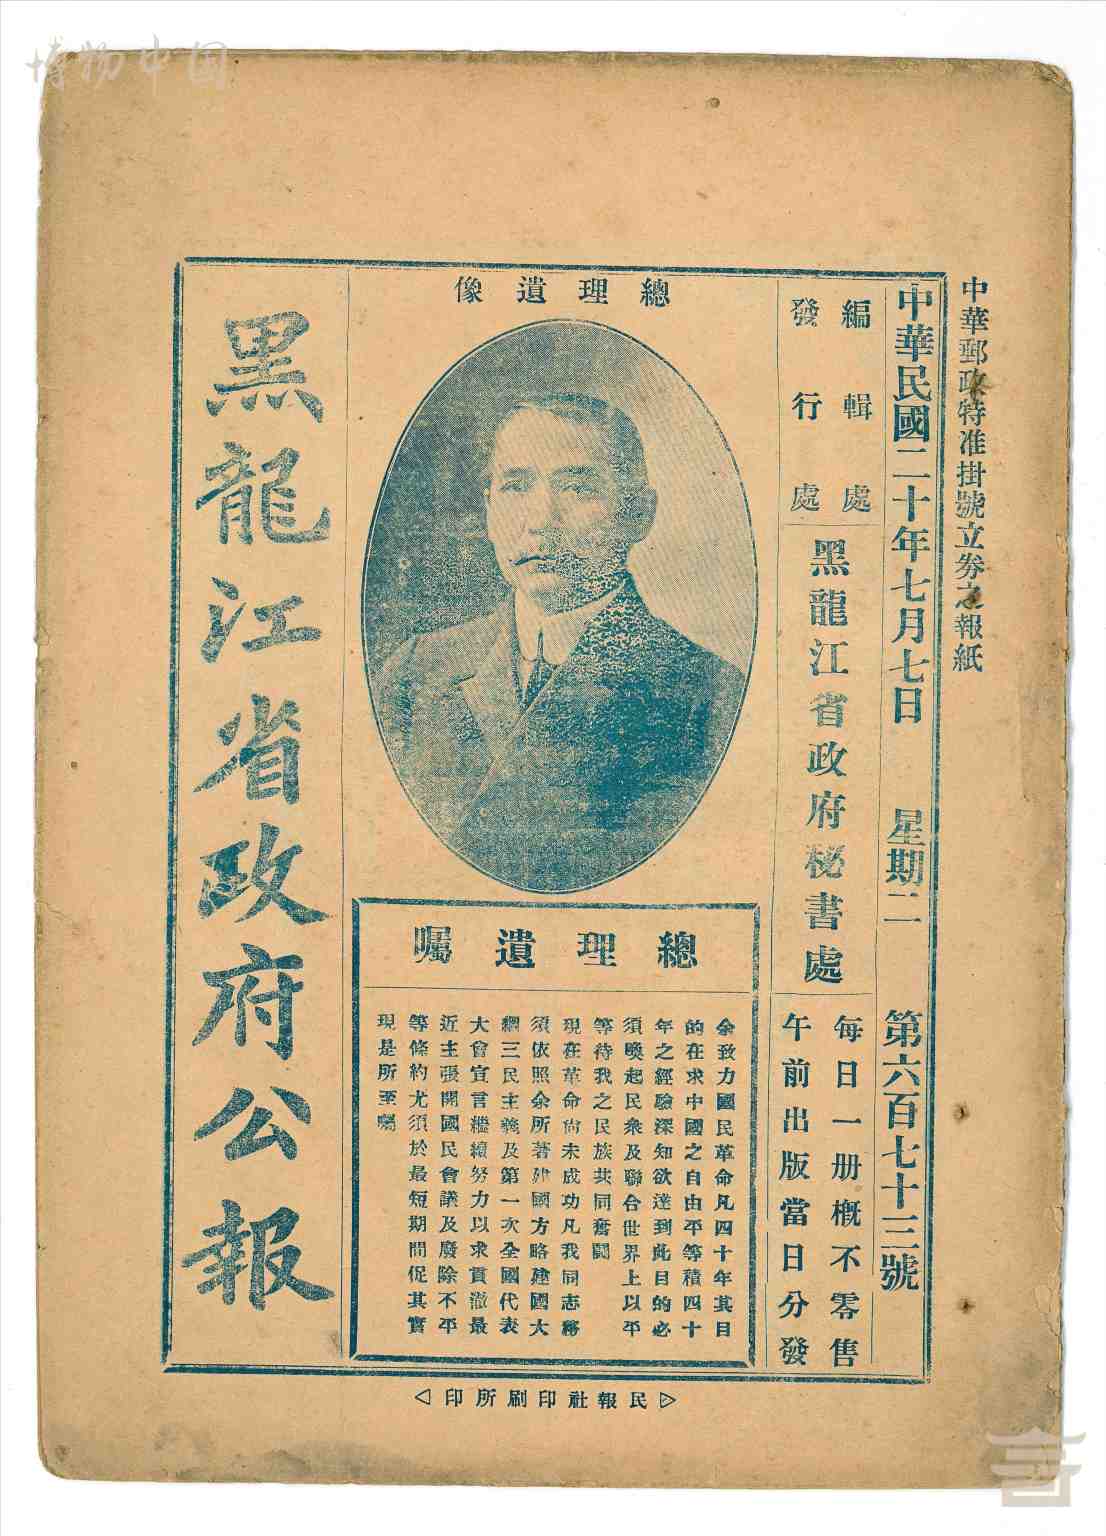 博物中国
中華郵政特准掛號立券之報紙
中華民國二十年七月七日 星期二 第六百七十三號
編輯處
發行處
黑龍江省政府秘書處
每日一册概不零售
午前出版當日分發
總理遺像
總理遺囑
余致力國民革命凡四十年其目
的在求中國之自由平等積四十
年之經驗深知欲達到此目的必
須喚起民衆及聯合世界上以平
等待我之民族共同奮鬪
現在革命尙未成功凡我同志務
須依照余所著建國方略建國大
綱三民主義及第一次全國代表
大會宣言繼續努力以求貫澈最
近主張開國民會議及廢除不平
等條約尤須於最短期間促其實
現是所至囑
黑龍江省政府公報
民報社印刷所印